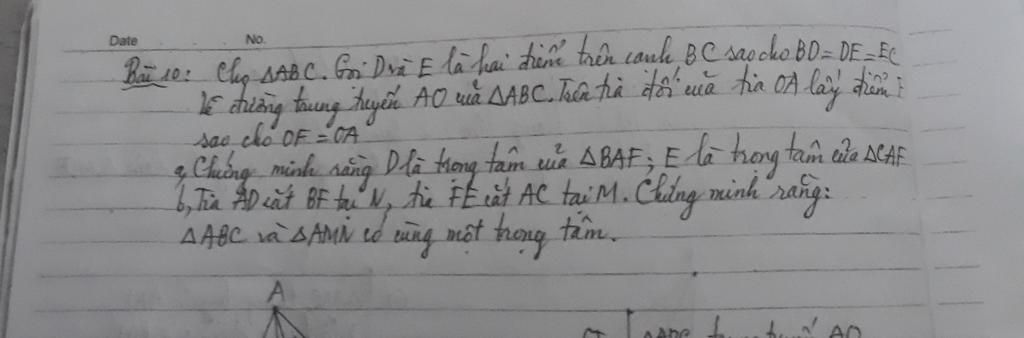 Date No.
Bài 10: Cho ΔABC. Gọi D và E là hai điểm trên cạnh BC sao cho BD = DE = EC
Vẽ đường trung tuyến AO của ΔABC. Trên tia đối của tia OA lấy điểm F
sao cho OF = OA
a, Chứng minh rằng D là trọng tâm của ΔBAF; E là trọng tâm của ΔCAF
b, Tia AD cắt BF tại N, tia FE cắt AC tại M. Chứng minh rằng:
ΔABC và ΔAMN có cùng một trọng tâm.
A
ΔABC trung tuyến AO